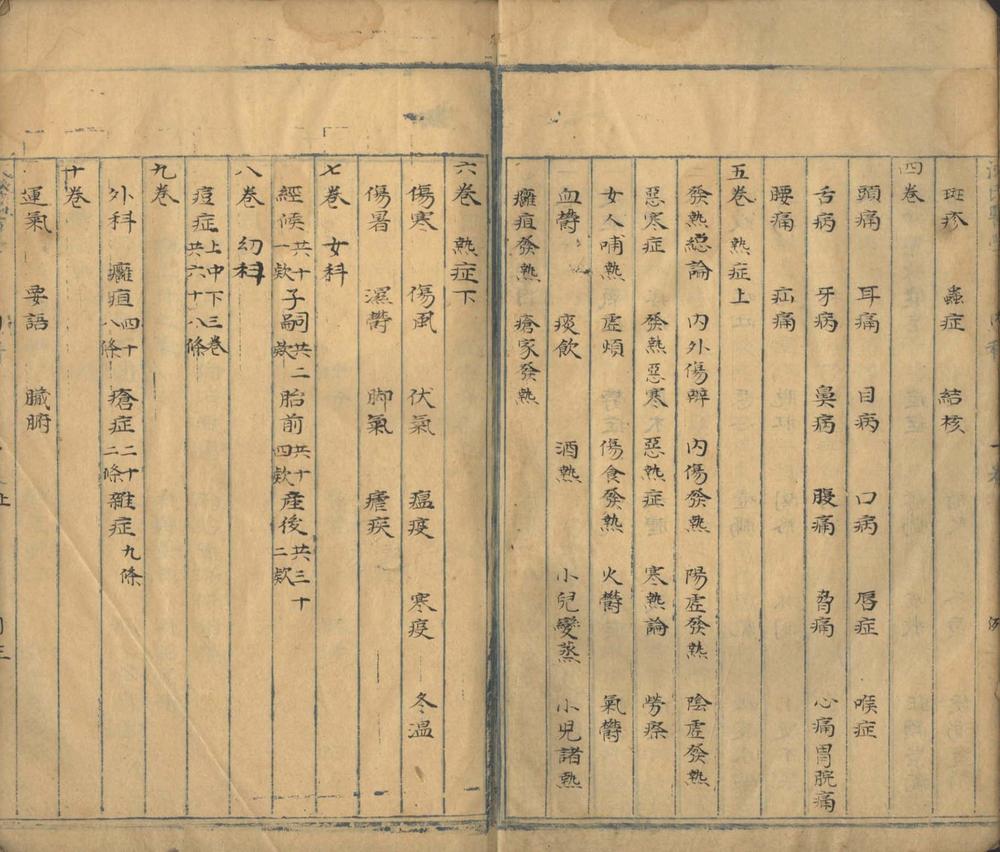 斑疹 蟲症 結核
四卷
頭痛 耳痛 目病 口病 唇症 喉症
舌病 牙病 鼻病 腹痛 脅痛 心痛胃脘痛
腰痛 疝痛
五卷 熱症上
發熱總論 內外傷辨 內傷發熱 陽虛發熱 陰虛發熱
惡寒症 發熱惡寒 惡熱症 寒熱論 勞瘵
女人晡熱 虛煩 傷食發熱 火鬱 氣鬱
血鬱 痰飲 酒熱 小兒變蒸 小兒諸熱
癰疽發熱 瘡家發熱
六卷 熱症下
傷寒 傷風 伏氣 瘟疫 寒疫 冬溫
傷暑 濕鬱 脚氣 瘧疾
七卷 女科
經候共十一欵 子嗣共二欵 胎前共十四欵 產後共三十二欵
八卷 幼科
痘症上中下三卷共六十八條
九卷
外科 癰疽四十八條 瘡症二十二條 雜症九條
十卷
運氣 要語 臟腑